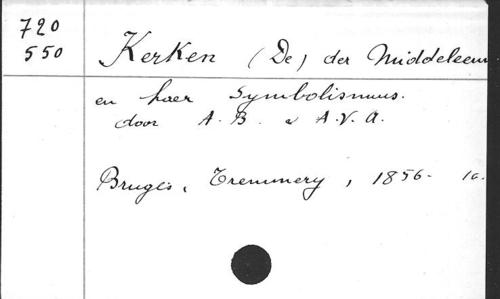 720
550
Kerken (De) der Middeleeuw
en haer Symbolismus.
door A. B. & A. V. A.
Bruges, Tremmery, 1856.